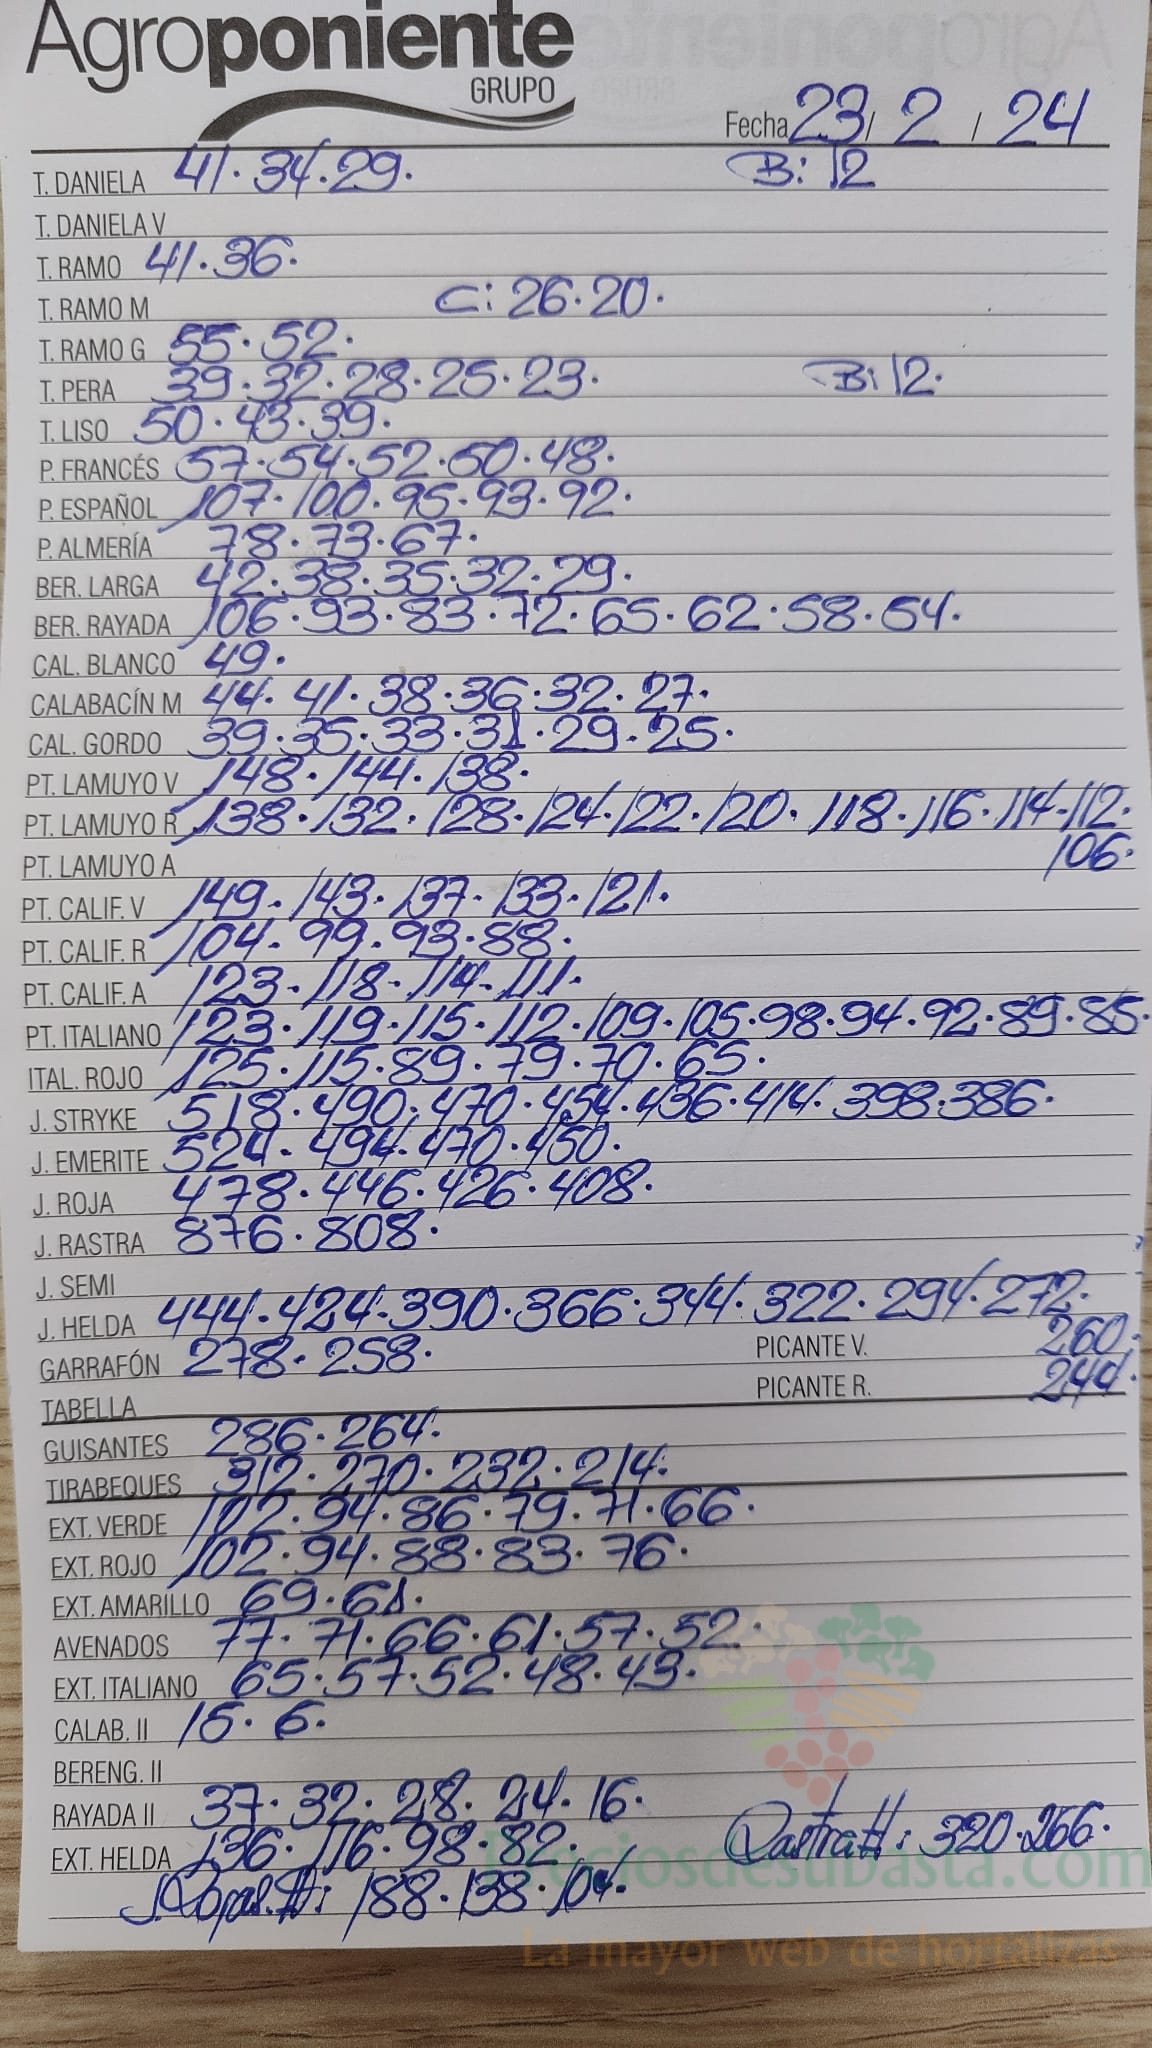 Agroponiente
GRUPO
Fecha 23 / 2 / 24
T. DANIELA 41. 34. 29. B: 12
T. DANIELA V
T. RAMO 41. 36.
T. RAMO M C: 26. 20.
T. RAMO G 55. 52.
T. PERA 39. 32. 28. 25. 23. B: 12.
T. LISO 50. 43. 39.
P. FRANCÉS 57. 54. 52. 50. 48.
P. ESPAÑOL 107. 100. 95. 93. 92.
P. ALMERÍA 78. 73. 67.
BER. LARGA 42. 38. 35. 32. 29.
BER. RAYADA 106. 93. 83. 72. 65. 62. 58. 54.
CAL. BLANCO 49.
CALABACÍN M 44. 41. 38. 36. 32. 27.
CAL. GORDO 39. 35. 33. 31. 29. 25.
PT. LAMUYO V 148. 144. 138.
PT. LAMUYO R 138. 132. 128. 124. 122. 120. 118. 116. 114. 112.
PT. LAMUYO A 106.
PT. CALIF. V 149. 143. 137. 133. 121.
PT. CALIF. R 104. 99. 93. 88.
PT. CALIF. A 123. 118. 114. 111.
PT. ITALIANO 123. 119. 115. 112. 109. 105. 98. 94. 92. 89. 85.
ITAL. ROJO 125. 115. 89. 79. 70. 65.
J. STRYKE 518. 490. 470. 454. 436. 414. 398. 386.
J. EMERITE 524. 494. 470. 450.
J. ROJA 478. 446. 426. 408.
J. RASTRA 876. 808.
J. SEMI
J. HELDA 444. 424. 390. 366. 344. 322. 294. 272.
GARRAFÓN 278. 258. PICANTE V. 260.
TABELLA PICANTE R. 244.
GUISANTES 286. 264.
TIRABEQUES 312. 270. 232. 214.
EXT. VERDE 102. 94. 86. 79. 71. 66.
EXT. ROJO 102. 94. 88. 83. 76.
EXT. AMARILLO 69. 61.
AVENADOS 77. 71. 66. 61. 57. 52.
EXT. ITALIANO 65. 57. 52. 48. 43.
CALAB. II 15. 6.
BERENG. II
RAYADA II 37. 32. 28. 24. 16.
EXT. HELDA 136. 116. 98. 82. Rastra II: 320. 266.
J. Rojas. II: 188. 138. 104.
Preciosdesubasta.com
La mayor web de hortalizas